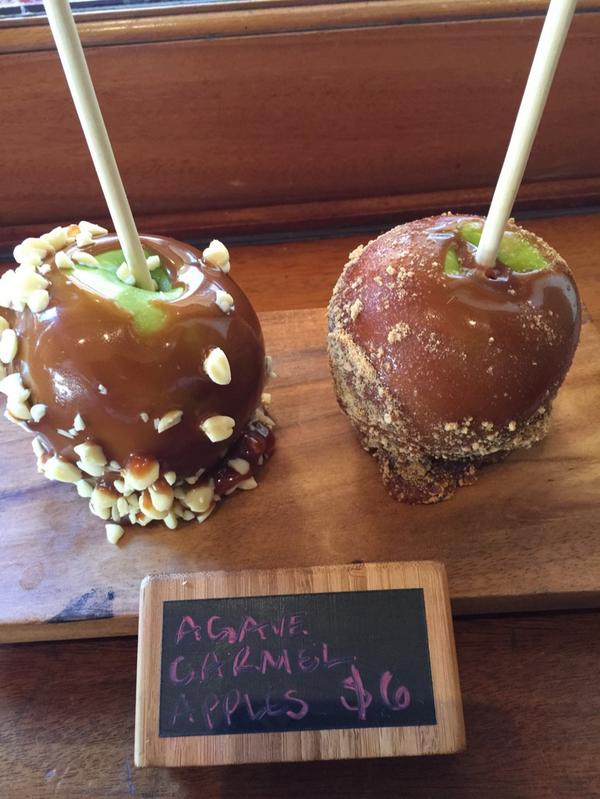 AGAVE
CARMEL
APPLES $6